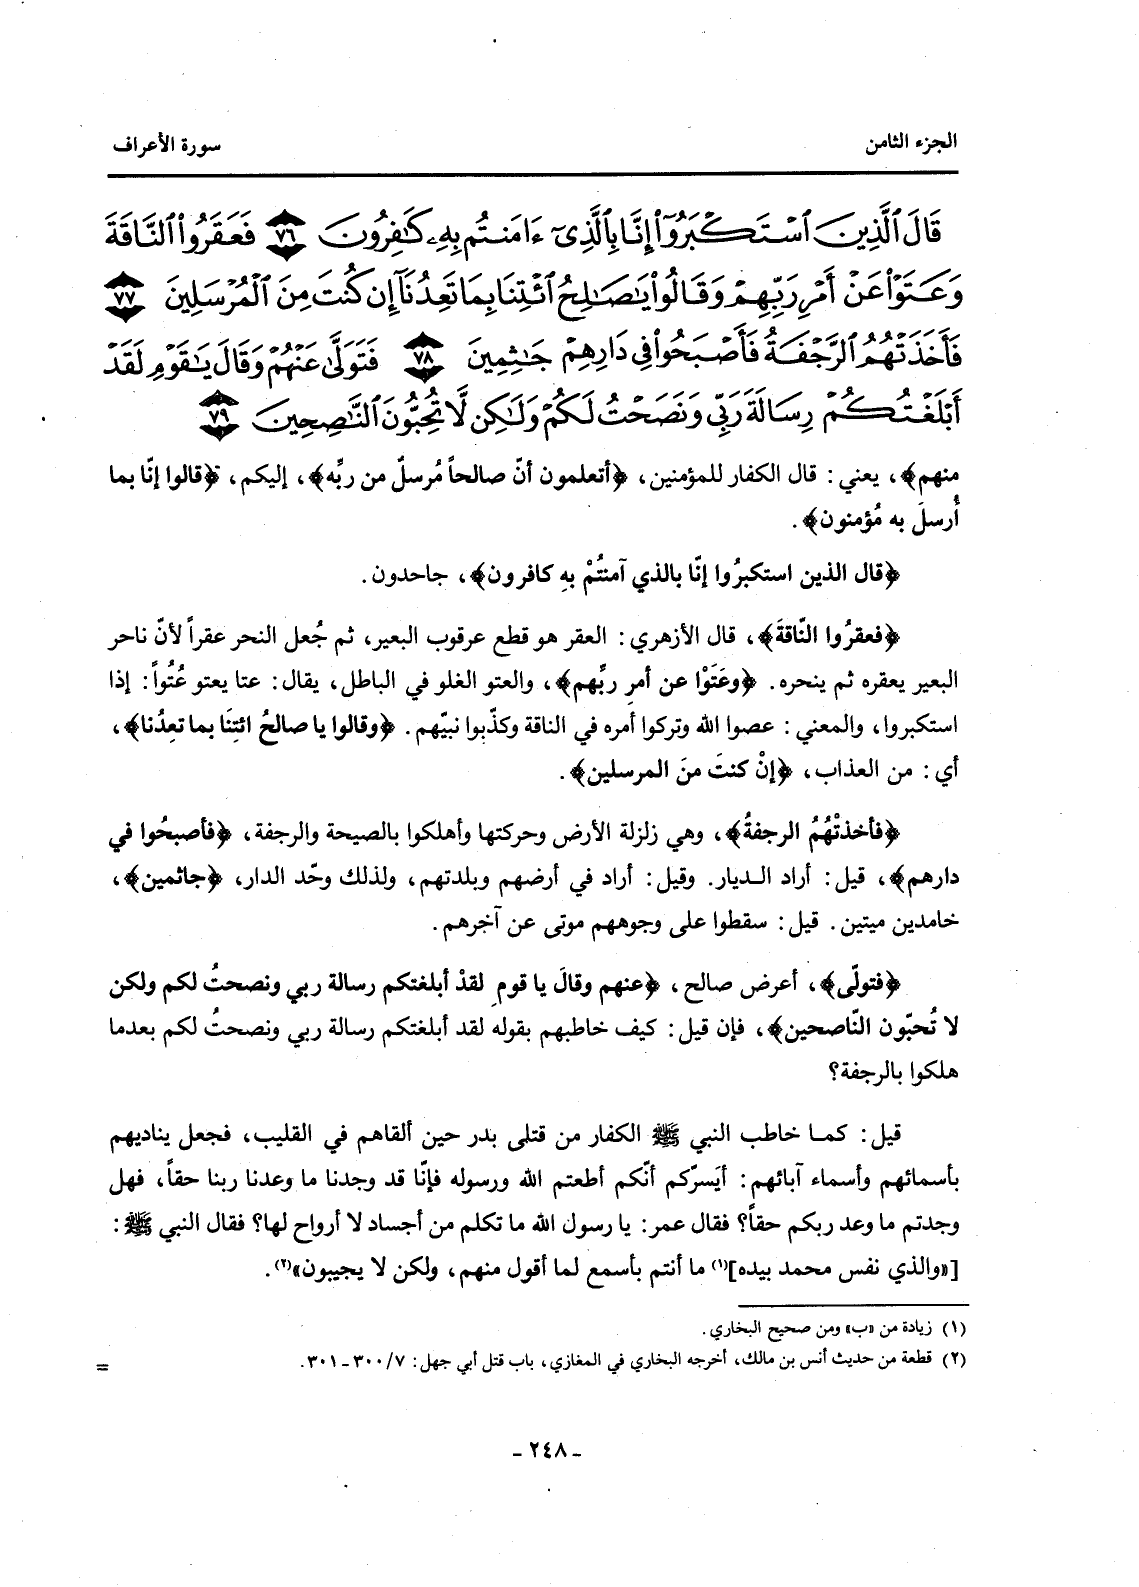 الجزء الثامن
سورة الأعراف
قَالَ ٱلَّذِينَ ٱسۡتَكۡبَرُوٓاْ إِنَّا بِٱلَّذِيٓ ءَامَنتُم بِهِۦ كَٰفِرُونَ ٧٦ فَعَقَرُواْ ٱلنَّاقَةَ
وَعَتَوۡاْ عَنۡ أَمۡرِ رَبِّهِمۡ وَقَالُواْ يَٰصَٰلِحُ ٱئۡتِنَا بِمَا تَعِدُنَآ إِن كُنتَ مِنَ ٱلۡمُرۡسَلِينَ ٧٧
فَأَخَذَتۡهُمُ ٱلرَّجۡفَةُ فَأَصۡبَحُواْ فِي دَارِهِمۡ جَٰثِمِينَ ٧٨ فَتَوَلَّىٰ عَنۡهُمۡ وَقَالَ يَٰقَوۡمِ لَقَدۡ
أَبۡلَغۡتُكُمۡ رِسَالَةَ رَبِّي وَنَصَحۡتُ لَكُمۡ وَلَٰكِن لَّا تُحِبُّونَ ٱلنَّٰصِحِينَ ٧٩
منهم﴾، يعني: قال الكفار للمؤمنين، ﴿أتعلمون أنّ صالحاً مُرسلٌ من ربِّه﴾، إليكم، ﴿قالوا إنّا بما
أُرسلَ به مُؤمنون﴾.
﴿قال الذين استكبرُوا إنّا بالذي آمنتُمْ بهِ كافرون﴾، جاحدون.
﴿فعقرُوا النّاقةَ﴾، قال الأزهري: العقر هو قطع عرقوب البعير، ثم جُعل النحر عقراً لأنّ ناحر
البعير يعقره ثم ينحره. ﴿وعَتَوْا عن أمرِ ربِّهم﴾، والعتو الغلو في الباطل، يقال: عتا يعتو عُتُواً: إذا
استكبروا، والمعني: عصوا الله وتركوا أمره في الناقة وكذّبوا نبيّهم. ﴿وقالوا يا صالحُ ائتِنَا بما تعِدُنا﴾،
أي: من العذاب، ﴿إنْ كنتَ منَ المرسلين﴾.
﴿فأخذتْهُمُ الرجفةُ﴾، وهي زلزلة الأرض وحركتها وأهلكوا بالصيحة والرجفة، ﴿فأصبحُوا في
دارهم﴾، قيل: أراد الديار. وقيل: أراد في أرضهم وبلدتهم، ولذلك وحّد الدار، ﴿جاثمين﴾،
خامدين ميتين. قيل: سقطوا على وجوههم موتى عن آخرهم.
﴿فتولّى﴾، أعرض صالح، ﴿عنهم وقالَ يا قومِ لقدْ أبلغتكم رسالة ربي ونصحتُ لكم ولكن
لا تُحبّون النّاصحين﴾، فإن قيل: كيف خاطبهم بقوله لقد أبلغتكم رسالة ربي ونصحتُ لكم بعدما
هلكوا بالرجفة؟
قيل: كما خاطب النبي ﷺ الكفار من قتلى بدر حين ألقاهم في القليب، فجعل يناديهم
بأسمائهم وأسماء آبائهم: أيَسرّكم أنّكم أطعتم الله ورسوله فإنّا قد وجدنا ما وعدنا ربنا حقاً، فهل
وجدتم ما وعد ربكم حقاً؟ فقال عمر: يا رسول الله ما تكلم من أجساد لا أرواح لها؟ فقال النبي ﷺ:
[«والذي نفس محمد بيده](١) ما أنتم بأسمع لما أقول منهم، ولكن لا يجيبون»(٢).
(١) زيادة من «ب» ومن صحيح البخاري.
(٢) قطعة من حديث أنس بن مالك، أخرجه البخاري في المغازي، باب قتل أبي جهل: ٣٠٠/٧ ـ ٣٠١. =
ـ ٢٤٨ ـ